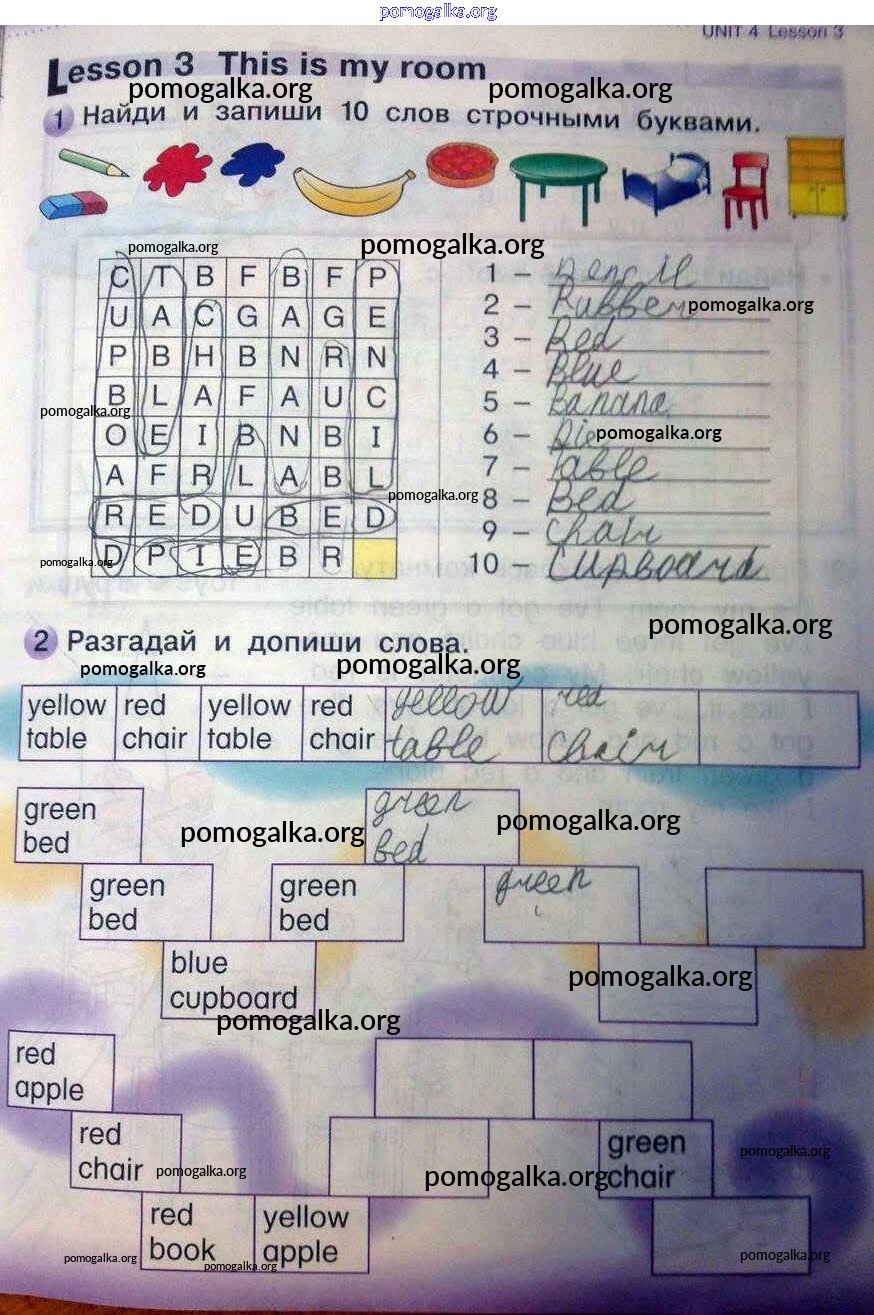 pomogalka.org
UNIT 4 Lesson 3
Lesson 3 This is my room
pomogalka.org pomogalka.org
1 Найди и запиши 10 слов строчными буквами.
pomogalka.org pomogalka.org
C T B F B F P
U A C G A G E
P B H B N R N
B L A F A U C
O E I B N B I
A F R L A B L
R E D U B E D
D P I E B R
pomogalka.org
pomogalka.org
pomogalka.org
1 – Pencil
2 – Rubber pomogalka.org
3 – Red
4 – Blue
5 – Banana
6 – Pie pomogalka.org
7 – Table
8 – Bed
9 – Chair
10 – Cupboard
pomogalka.org
2 Разгадай и допиши слова.
pomogalka.org pomogalka.org
yellow red yellow red yellow red
table chair table chair table chair
green green
bed bed
pomogalka.org pomogalka.org
green green green
bed bed
blue
cupboard
pomogalka.org
pomogalka.org
red
apple
red green
chair chair
pomogalka.org pomogalka.org pomogalka.org
red yellow
book apple
pomogalka.org pomogalka.org pomogalka.org